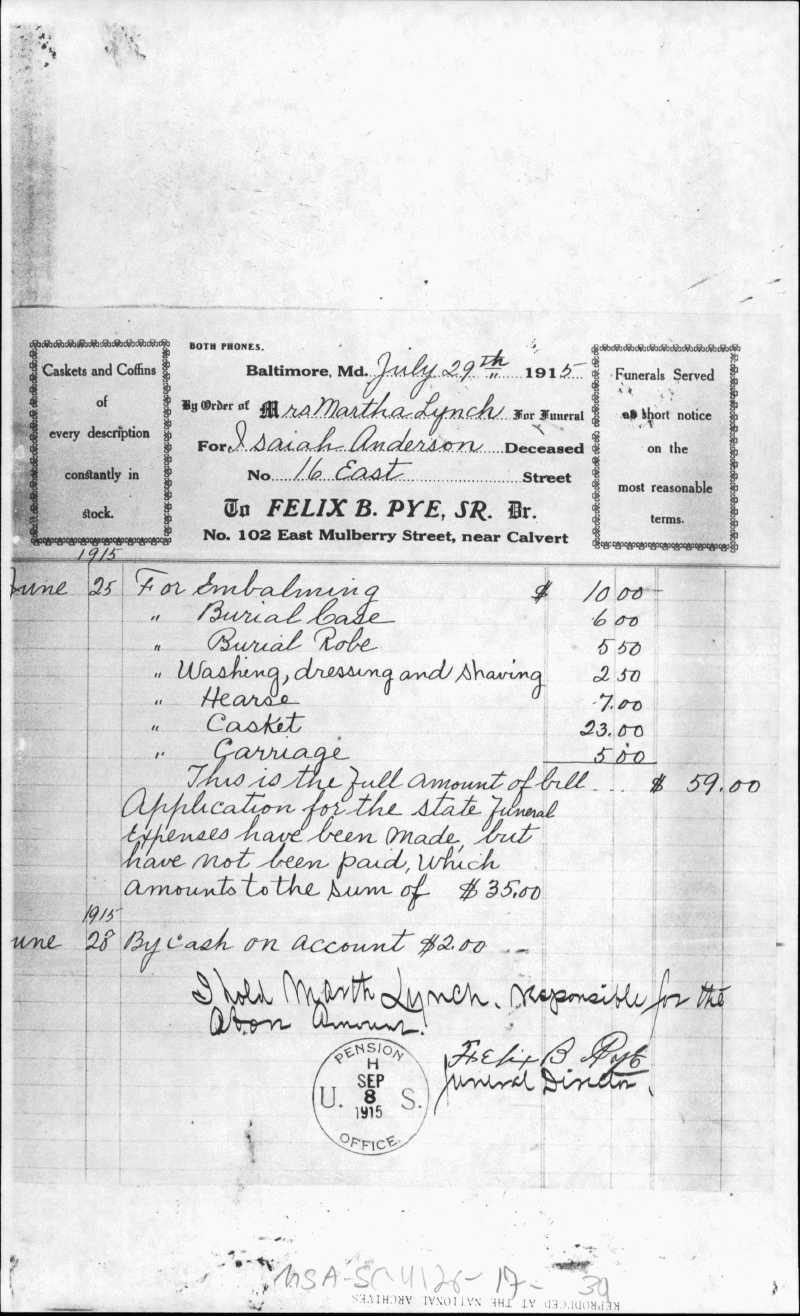 BOTH PHONES.
Caskets and Coffins
of
every description
constantly in
stock.
Baltimore, Md. July 29th 1915
By Order of Mrs Martha Lynch For Funeral
For Isaiah Anderson Deceased
No 16 East Street
To FELIX B. PYE, SR. Dr.
No. 102 East Mulberry Street, near Calvert
Funerals Served
at short notice
on the
most reasonable
terms.
1915
June 25 For Embalming $ 10 00
" Burial Case 6 00
" Burial Robe 5 50
" Washing, dressing and Shaving 2 50
" Hearse 7.00
" Casket 23.00
" Carriage 5 00
This is the full amount of bill $ 59.00
Application for the state funeral
Expenses have been made, but
have not been paid, which
amounts to the sum of $35.00
1915
une 28 By Cash on account $2.00
I hold Marth Lynch. responsible for the
abov amount.
Felix B Pye
Funeral Director.
PENSION
H
SEP
U. 8 S.
1915
OFFICE.
MSA-SC 4126-17-39
REPRODUCED AT THE NATIONAL ARCHIVES